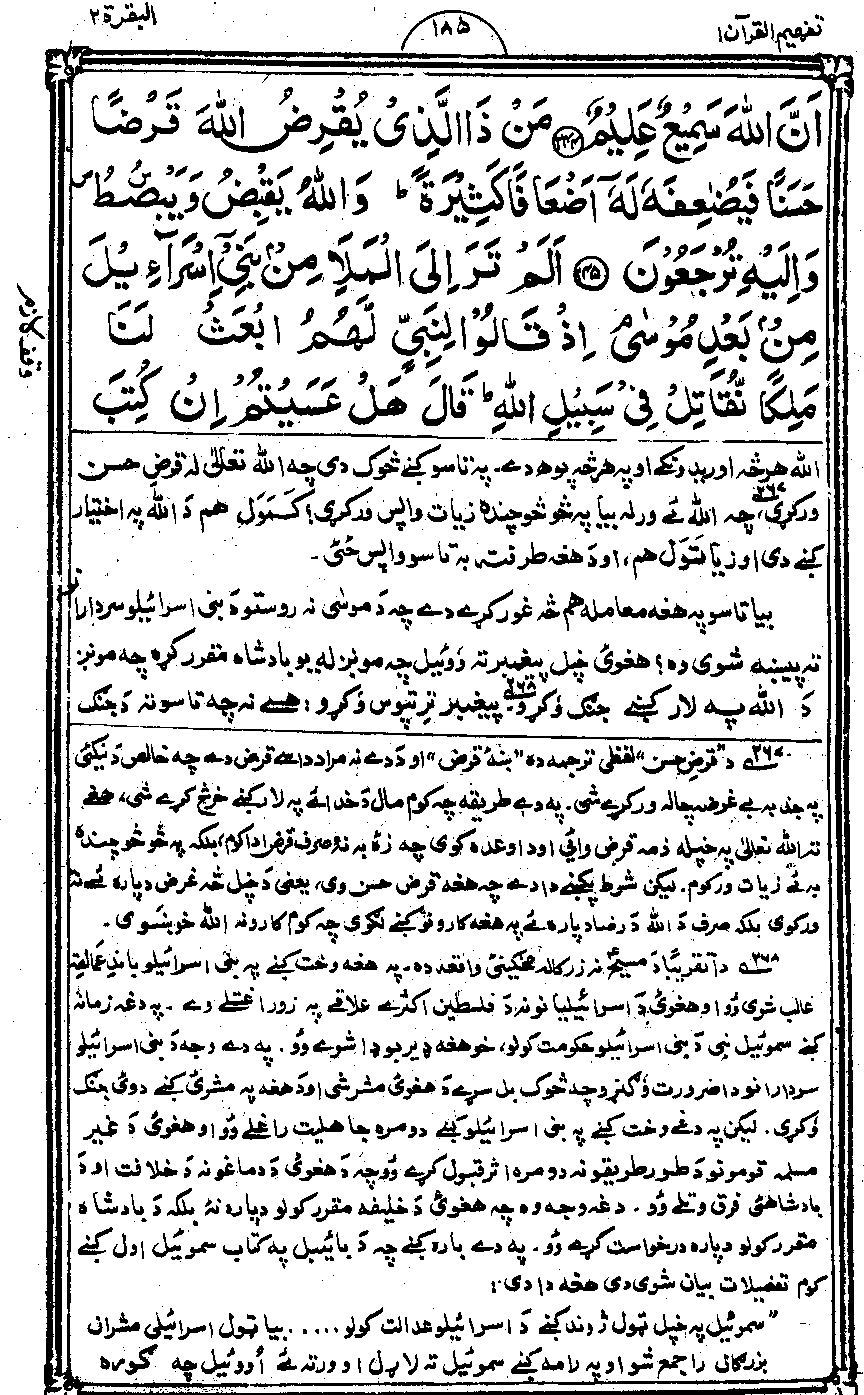 تفهيم القرآن ١
١٨٥
البقرة ٢
اَنَّ اللّٰهَ سَمِيْعٌ عَلِيْمٌ ﴿٢٤٤﴾ مَنْ ذَا الَّذِىْ يُقْرِضُ اللّٰهَ قَرْضًا
حَسَنًا فَيُضٰعِفَهٗ لَهٗٓ اَضْعَافًا كَثِيْرَةً ؕ وَاللّٰهُ يَقْبِضُ وَيَبْصُۜطُ ص
وَاِلَيْهِ تُرْجَعُوْنَ ﴿٢٤٥﴾ اَلَمْ تَرَ اِلَى الْمَلَاِ مِنْۢ بَنِىْٓ اِسْرَآءِيْلَ
مِنْۢ بَعْدِ مُوْسٰى ۘ اِذْ قَالُوْا لِنَبِىٍّ لَّهُمُ ابْعَثْ لَنَا
مَلِكًا نُّقَاتِلْ فِىْ سَبِيْلِ اللّٰهِ ؕ قَالَ هَلْ عَسَيْتُمْ اِنْ كُتِبَ
وقف لازم
الله هر څه اوريدونکے او په هر څه پوهه دے۔ په تاسو کښے څوک دی چه الله تعالیٰ له قرض حسن
ورکړی،٢٦٧ چه الله ئے ورله بيا په څو څو چنده زيات واپس ورکړی؟ کمول هم د الله په اختيار
کښے دی او زياتول هم، او د هغه طرف ته به تاسو واپس ځئ۔
بيا تاسو په هغه معامله هم څه غور کړے دے چه د موسیٰ نه روستو د بنی اسرائيلو سردارا
نو ته پيښه شوی وه؟ هغوئ خپل پيغمبر ته وَوئيل چه مونږ له يو بادشاه مقرر کړه چه مونږ
دَ الله په لار کښے جنګ وکړو٢٦٨۔ پيغمبر ترې تپوس وکړو: هسے نه چه تاسو ته دَ جنګ
٢٦٧ د "قرض حسن" لفظی ترجمه ده "ښهٔ قرض" او دَ دے نه مراد داسے قرض دے چه خالص دَ نيکئ
په جذبه بے غرضه چاله ورکړے شی۔ په دے طريقه چه کوم مال دَ خدائے په لار کښے خرچ کړے شی، هغے
ته الله تعالیٰ په خپله ذمه قرض وائی او دا وعده کوی چه زهٔ به نهٔ صرف قرض ادا کړم، بلکه په څو څو چنده
به ئے زيات ورکوم۔ ليکن شرط پکښے دا دے چه هغه قرض حسن وی، يعنی دَ خپل څه غرض دپاره ئے نهٔ
ورکوی بلکه صرف دَ الله دَ رضا دپاره ئے په هغه کارونو کښے لګوی چه کوم کارونه الله خوښوی۔
٢٦٨ دا تقريبًا دَ مسيحؑ نه زر کاله مخکښنئ واقعه ده۔ په هغه وخت کښے په بنی اسرائيلو باندے عمالقه
غالب شوی وُو او هغوئ دَ اسرائيليانو نه دَ فلسطين اکثرے علاقے په زور اخستے وے۔ په دغه زمانه
کښے سموئيل نبی دَ بنی اسرائيلو حکومت کولو، خو هغه ډير بوډا شوے وُو۔ په دے وجه دَ بنی اسرائيلو
سردارانو دا ضرورت وګنړو چه څوک بل سړے دَ هغوئ مشر شی او دَ هغه په مشرئ کښے دوئ جنګ
وکړی۔ ليکن په دغے وخت کښے په بنی اسرائيلو کښے دومره جاهليت راغلے وُو او هغوئ دَ غير
مسلمه قومونو دَ طور طريقو نه دومره اثر قبول کړے وُو چه دَ هغوئ دَ دماغو نه دَ خلافت او دَ
بادشاهئ فرق وتلے وُو۔ دغه وجه وه چه هغوئ دَ خليفه مقرر کولو دپاره نهٔ بلکه دَ بادشاه
مقرر کولو دپاره درخواست کړے وُو۔ په دے باره کښے چه دَ بائيبل په کتاب سموئيل اول کښے
کوم تفصيلات بيان شوی دی هغه دا دی:
"سموئيل په خپل ټول ژوند کښے دَ اسرائيلو عدالت کولو..... بيا ټول اسرائيلی مشران
بزرګان راجمع شو او په رامه کښے سموئيل ته لاړل او ورته ئے اُووئيل چه ګوره